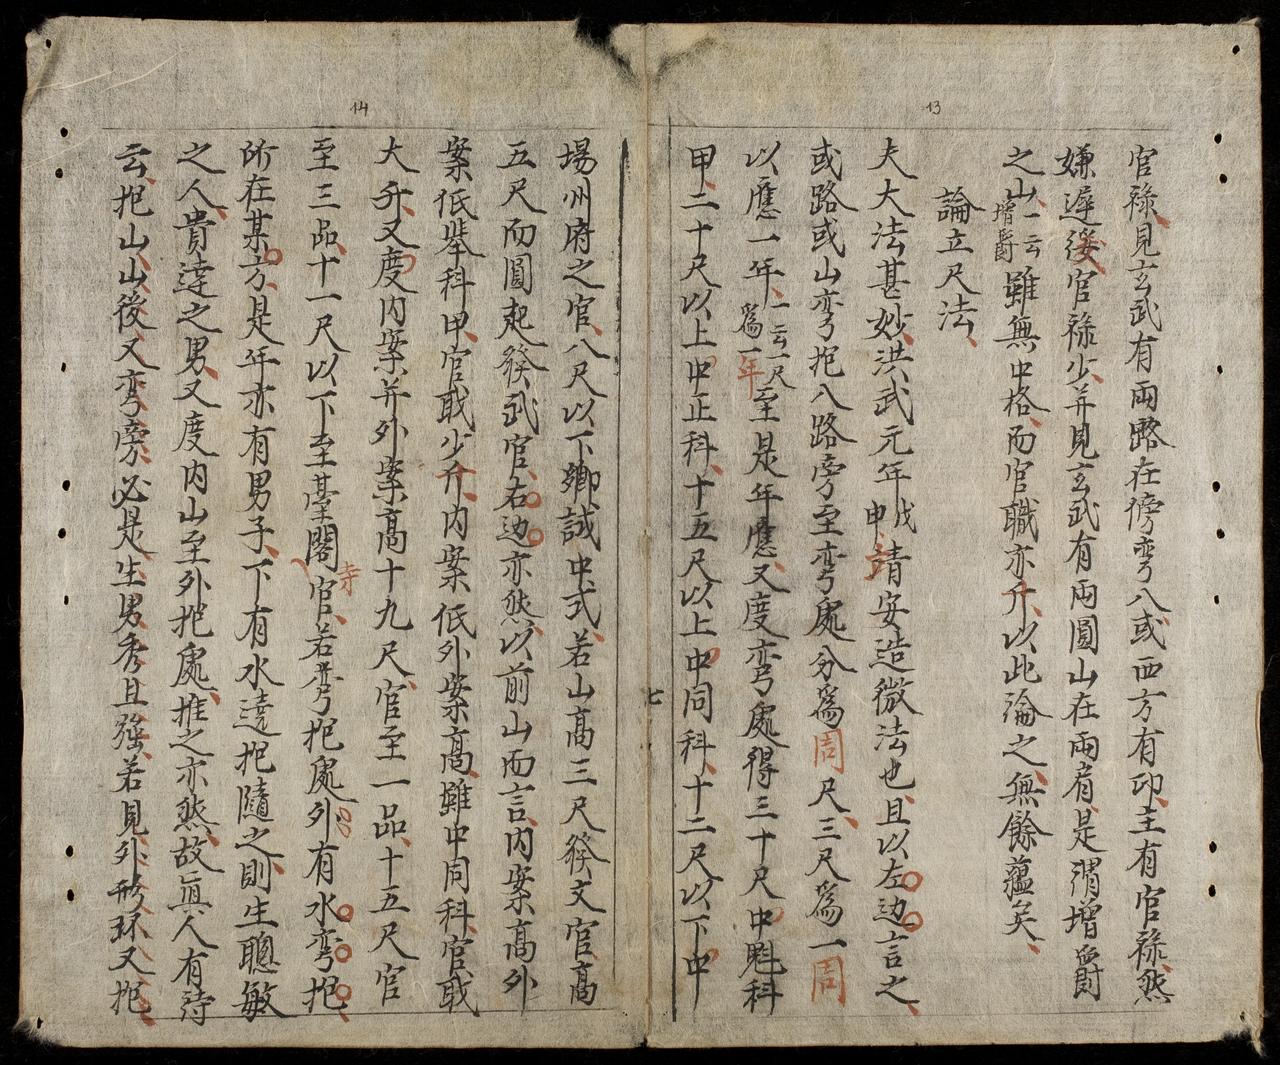 13
官祿見玄武有兩路在傍弯八或四方有印主有官祿然
嫌遲綬官祿少并見玄武有兩圓山在兩肩是謂增爵
之山一云增爵雖無中格而官職亦升以此論之無餘蘊矣
論立尺法
夫大法甚妙洪武元年戊申靖安造微法也且以左边言之
或路或山弯抱八路旁至弯處分爲周尺三尺爲一周
以應一年一云一尺爲一年至是年應又度弯處得三十尺中魁科
甲二十尺以上中正科十五尺以上中同科十二尺以下中
七
14
場州府之官八尺以下鄉試中式若山高三尺發文官高
五尺而圓起發武官右边亦然以前山而言內案高外
案低举科甲官戢少升內案低外案高雖中同科官戢
大升又度內案并外案高十九尺官至一品十五尺官
至三品十一尺以下至臺閣寺官若弯抱處外有水弯抱
所在某方是年亦有男子下有水遶抱隨之則生聰敏
之人貴達之男又度內山至外抱處推之亦然故眞人有詩
云抱山山後又弯旁必是生男秀且強若見外形环又抱